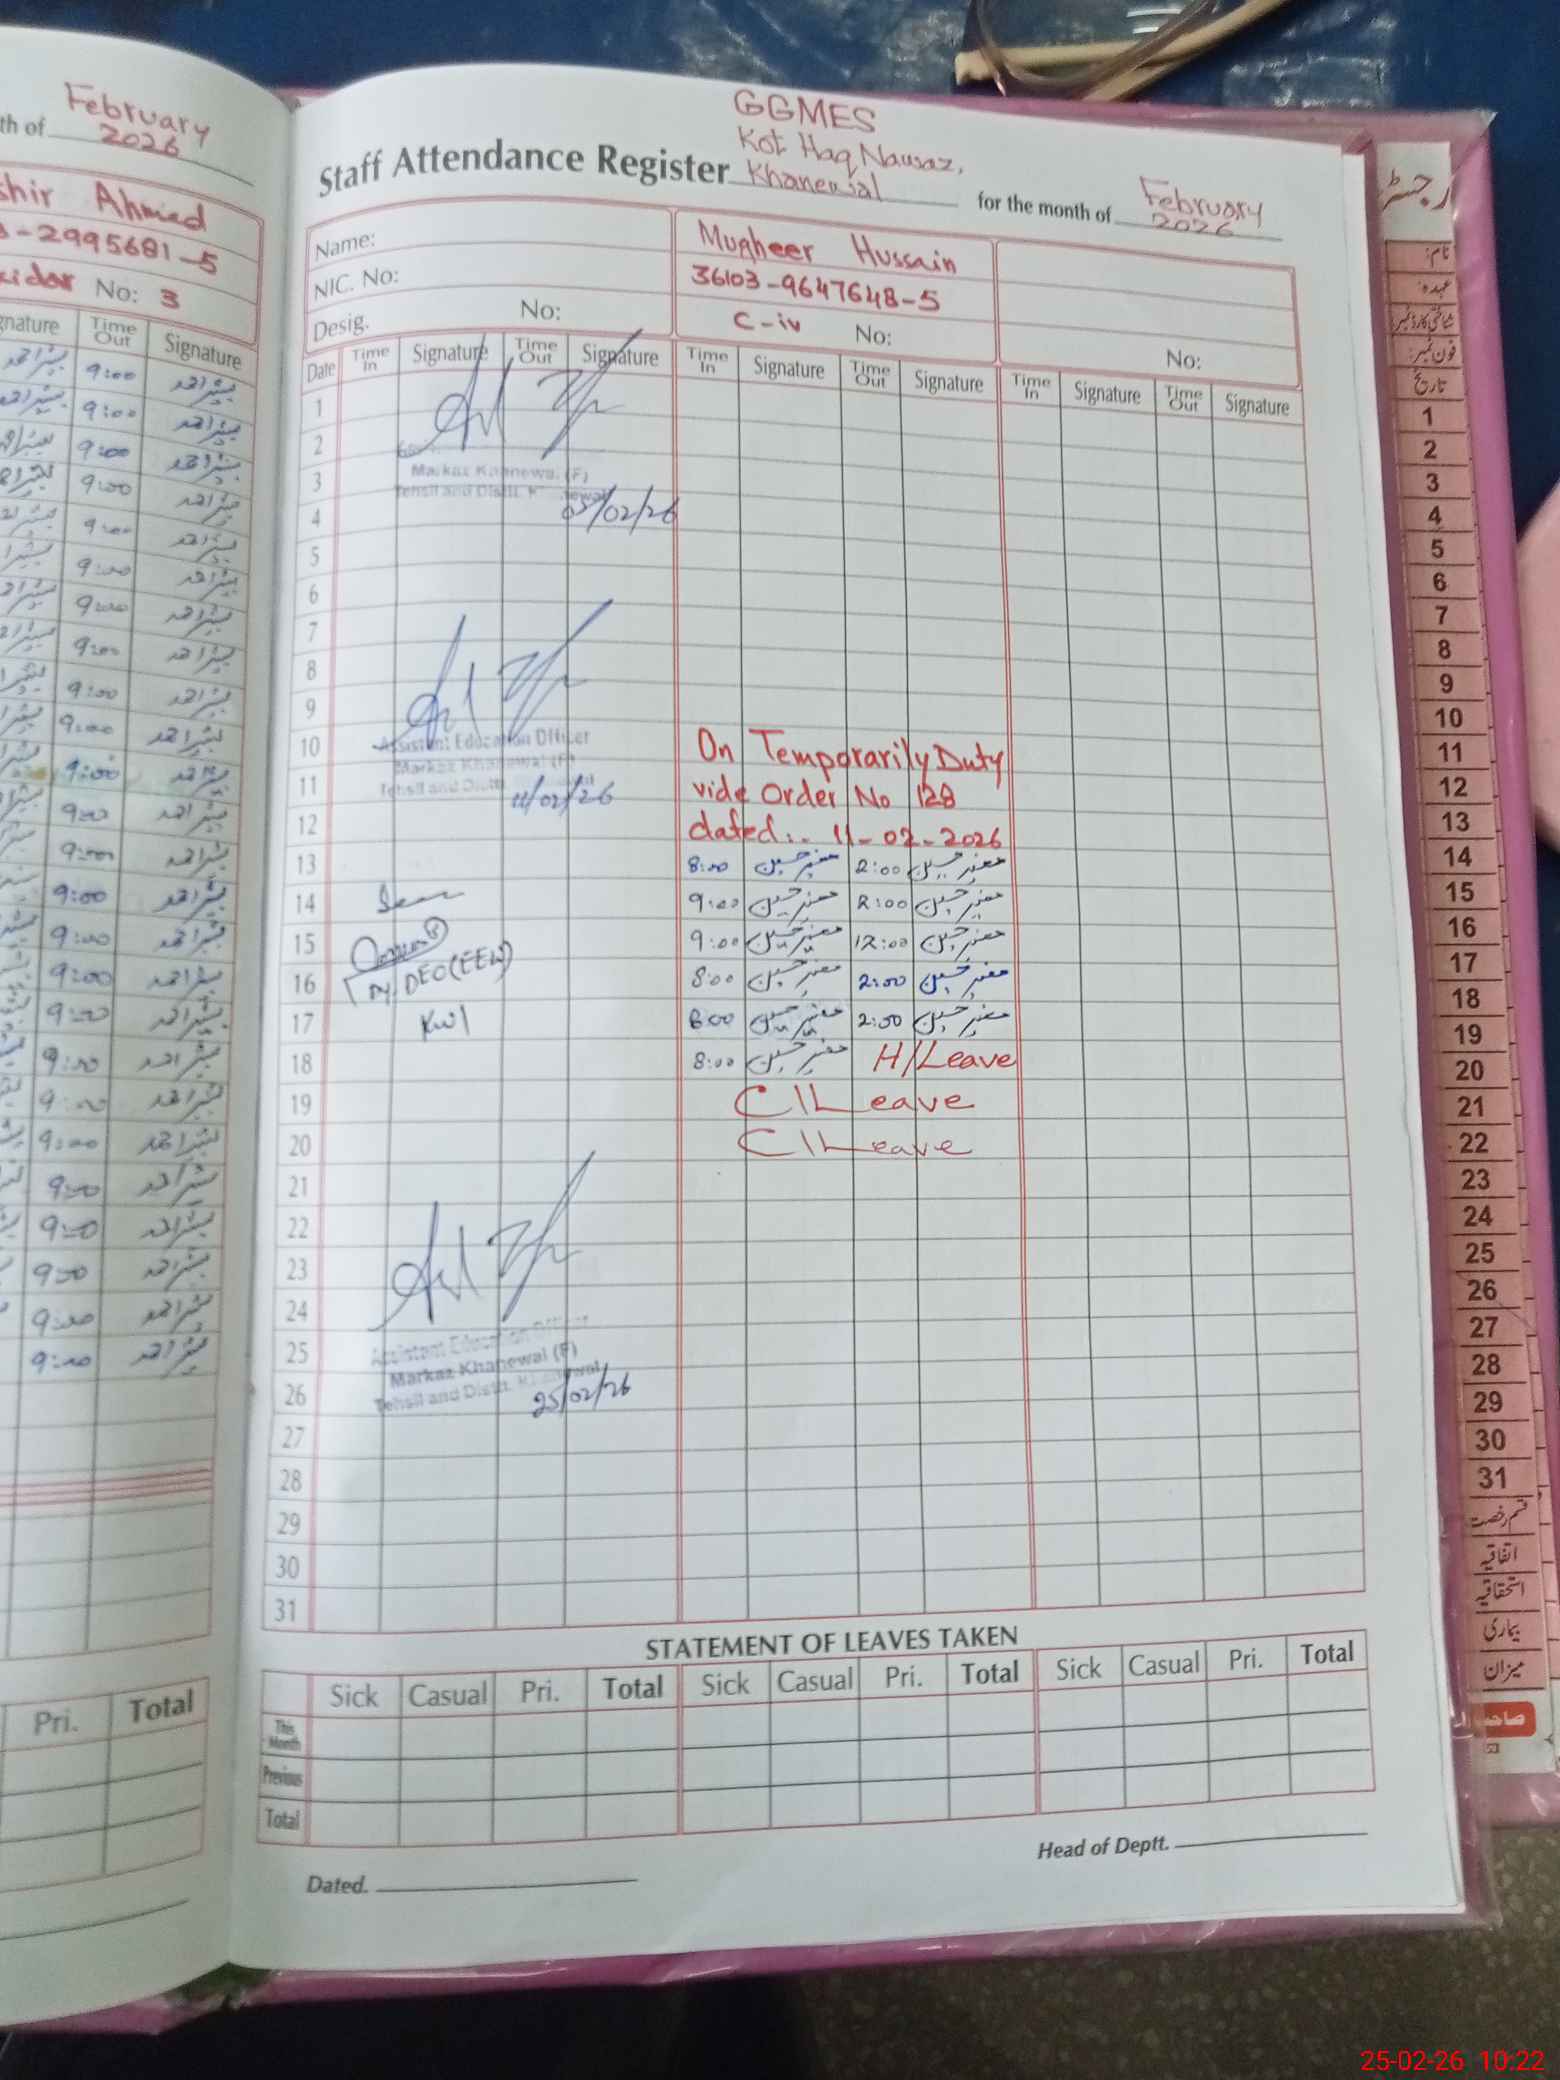 February
th of 2026
shir Ahmed
-2995681-5
kidar No: 3
Time Out Signature
9:00 بشیر احمد
9:00 بشیر احمد
9:00 بشیر احمد
9:00 بشیر احمد
9:00 بشیر احمد
9:00 بشیر احمد
9:00 بشیر احمد
9:00 بشیر احمد
9:00 بشیر احمد
9:00 بشیر احمد
9:00 بشیر احمد
9:00 بشیر احمد
9:00 بشیر احمد
9:00 بشیر احمد
9:00 بشیر احمد
9:00 بشیر احمد
9:00 بشیر احمد
9:00 بشیر احمد
9:00 بشیر احمد
9:00 بشیر احمد
9:00 بشیر احمد
9:00 بشیر احمد
9:00 بشیر احمد
9:00 بشیر احمد
9:00 بشیر احمد
Pri. Total
GGMES
Kot Haq Nawaz,
Staff Attendance Register Khanewal for the month of February
2026
Name: Mugheer Hussain
NIC. No: 36103-9647648-5
Desig. No: C-iv No: No:
Date Time In Signature Time Out Signature Time In Signature Time Out Signature Time In Signature Time Out Signature
1
2
3 Markaz Khanewal (F)
Tehsil and Distt.
4 05/02/26
5
6
7
8
9
10 Assistant Education Officer On Temporarily Duty
Markaz Khanewal (F)
11 Tehsil and Distt. 11/02/26 vide Order No 128
12 dated:- 11-02-2026
13 8:00 مغیر حسین 2:00 مغیر حسین
14 9:00 مغیر حسین 2:00 مغیر حسین
15 9:00 مغیر حسین 12:00 مغیر حسین
16 Dy. DEO(EEW) 8:00 مغیر حسین 2:00 مغیر حسین
17 Kwl 8:00 مغیر حسین 2:00 مغیر حسین
18 8:00 مغیر حسین H/Leave
19 C\Leave
20 C\Leave
21
22
23
24
25 Assistant Education Officer
Markaz Khanewal (F)
26 Tehsil and Distt. Khanewal 25/02/26
27
28
29
30
31
STATEMENT OF LEAVES TAKEN
Sick Casual Pri. Total Sick Casual Pri. Total Sick Casual Pri. Total
This Month
Previous
Total
Dated. Head of Deptt.
رجسٹر
نام:
عہدہ:
شناختی کارڈ نمبر:
فون نمبر:
تاریخ
1
2
3
4
5
6
7
8
9
10
11
12
13
14
15
16
17
18
19
20
21
22
23
24
25
26
27
28
29
30
31
قسم رخصت
اتفاقیہ
استحقاقیہ
بیماری
میزان
25-02-26 10:22